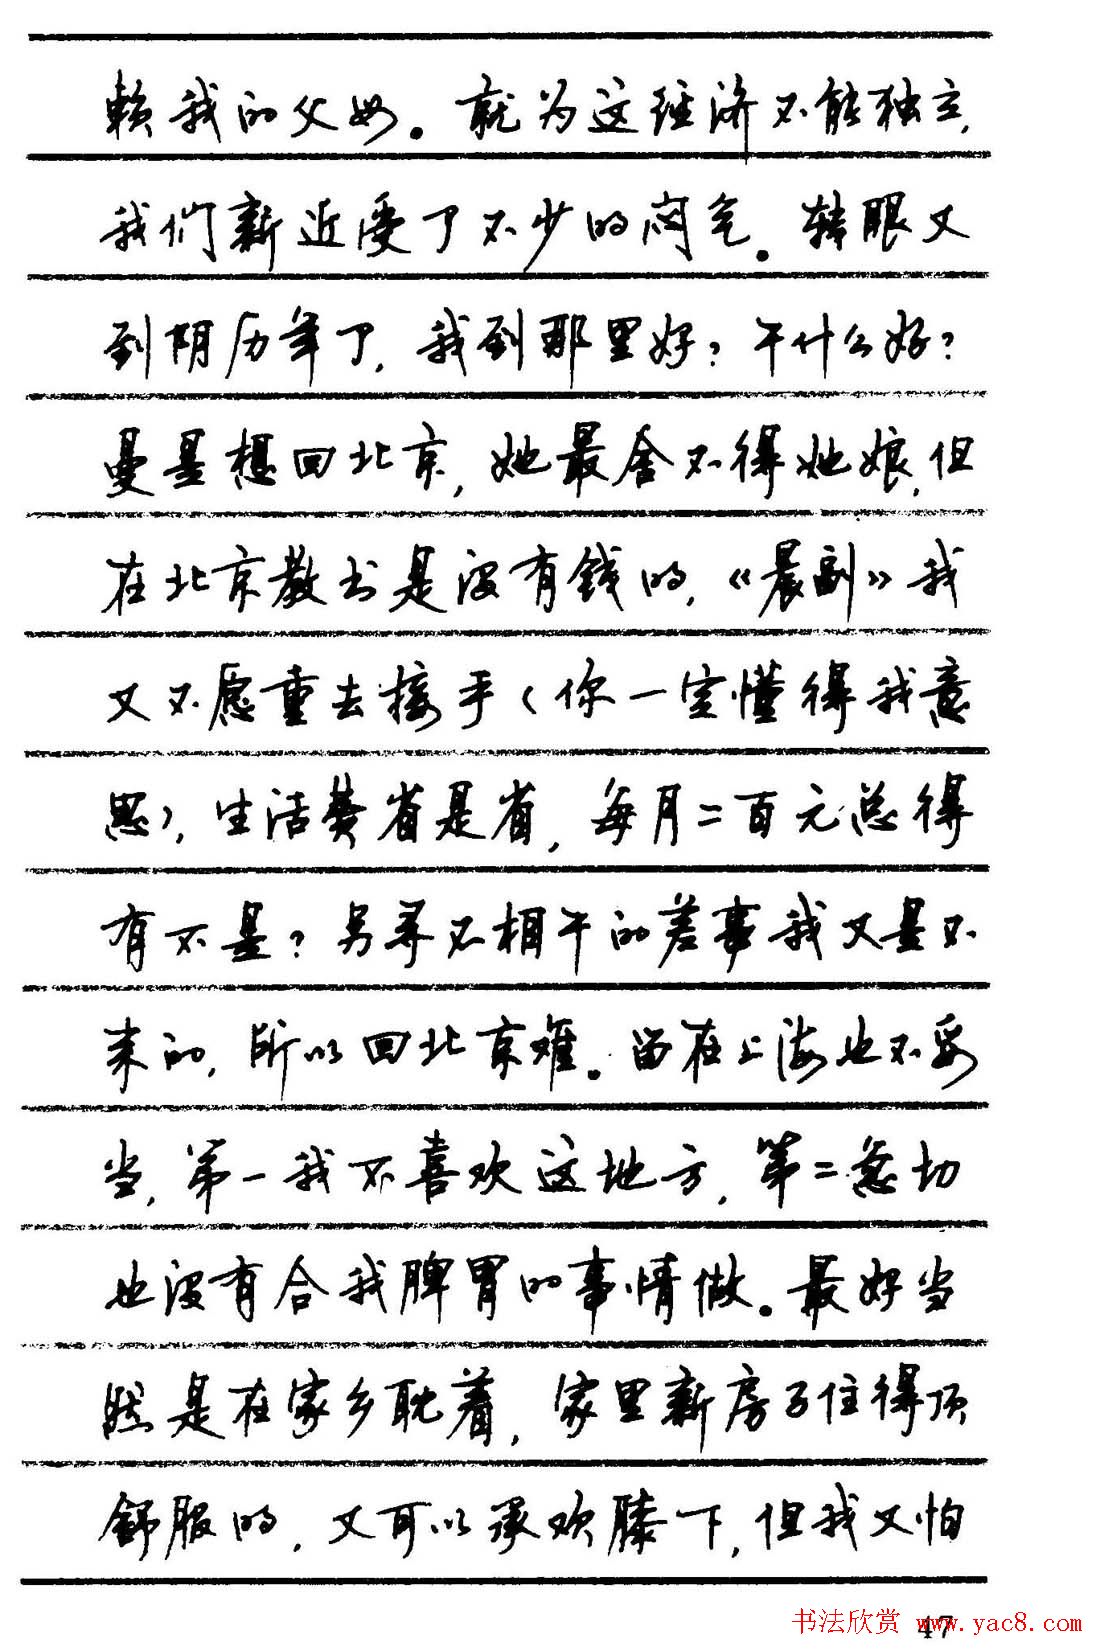 赖我的父母。就为这经济不能独立,
我们新近受了不少的闷气。转眼又
到阴历年了,我到那里好?干什么好?
曼是想回北京,她最舍不得她娘,但
在北京教书是没有钱的,《晨副》我
又不愿重去接手(你一定懂得我意
思),生活费省是省,每月二百元总得
有不是?另寻不相干的差事我又是不
来的,所以回北京难。留在上海也不妥
当,第一我不喜欢这地方,第二急切
也没有合我脾胃的事情做。最好当
然是在家乡耽着,家里新房子住得顶
舒服的,又可以承欢膝下,但我又怕
47
书法欣赏 www.yac8.com